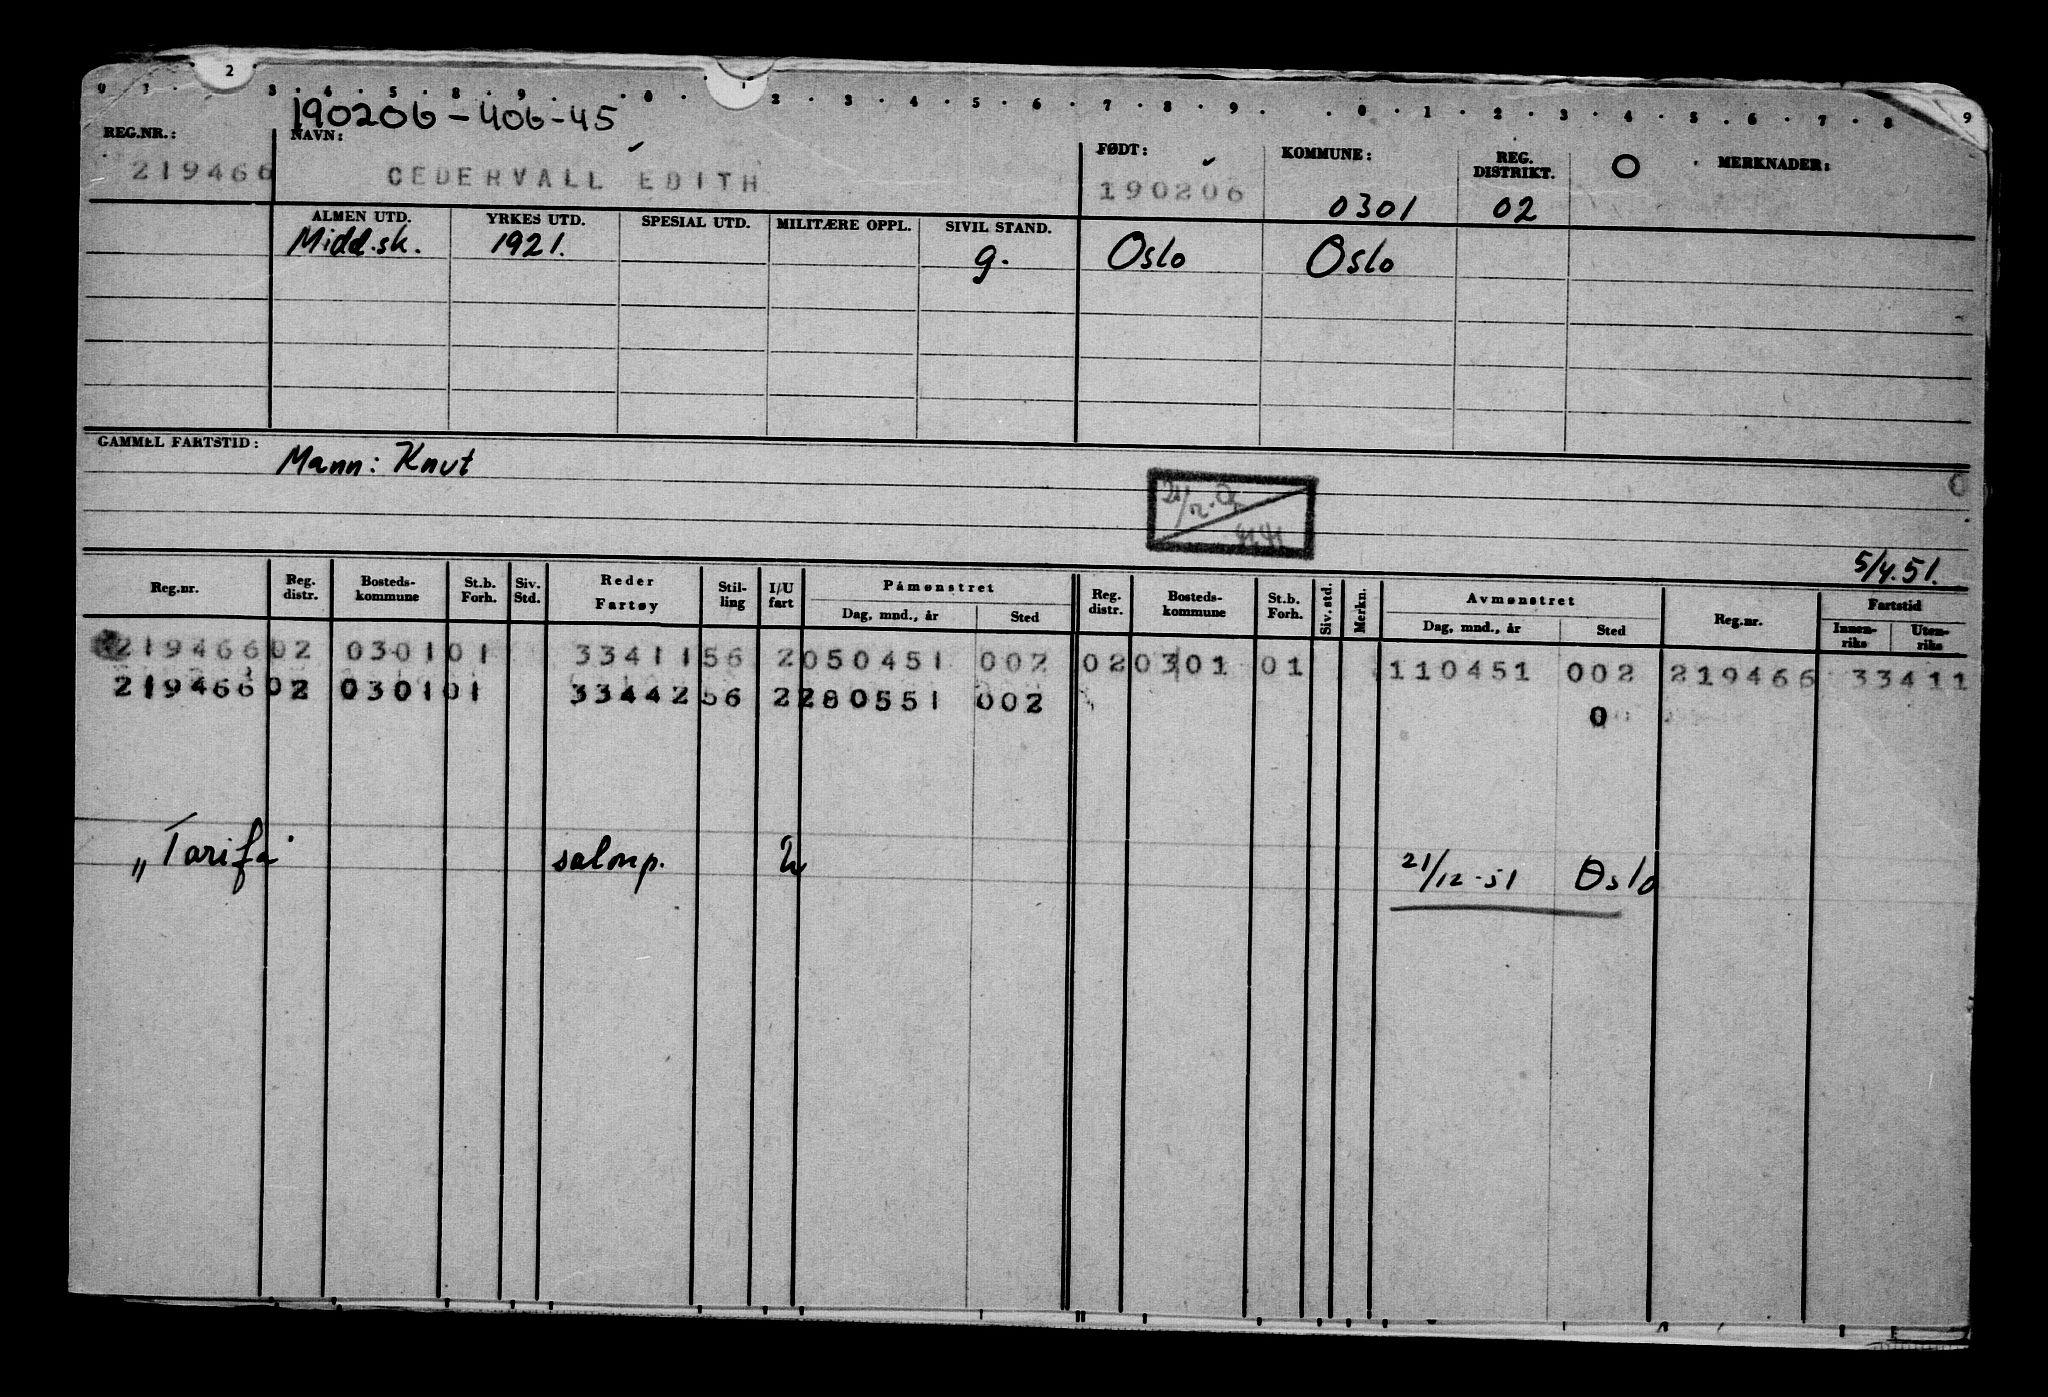 0 1 . 2 . 3 . 4 . 5 . 8 . 9 . . 0 . 1 . 2 . 3 . 4 . 5 . 6 . 7 . 8 . 9 . . 0 . 1 . 2 . 3 . 4 . 5 . 6 . 7 . 8 9
190206-406-45
REG.NR.: NAVN: FØDT: KOMMUNE: REG. DISTRIKT. O MERKNADER:
219466 CEDERVALL EDITH 190206 0301 02
ALMEN UTD. YRKES UTD. SPESIAL UTD. MILITÆRE OPPL. SIVIL STAND.
Midd.sk. 1921. g. Oslo Oslo
GAMMEL FARTSTID: Mann: Knut
0
21/12.
5/4.51.
Reg.nr. Reg. distr. Bosteds-kommune St.b. Forh. Siv. Std. Reder Fartøy Stil-ling I/U fart Påmønstret Dag, mnd., år Sted Reg. distr. Bosteds-kommune St.b. Forh. Siv. std. Merkn. Avmønstret Dag, mnd., år Sted Reg.nr. Fartstid Innen-riks Uten-riks
219466 02 0301 01 33411 56 2 050451 002 02 0301 01 110451 002 219466 33411
219466 02 0301 01 33442 56 2 280551 002 0
„Tarifa" salonp. U 21/12-51 Oslo